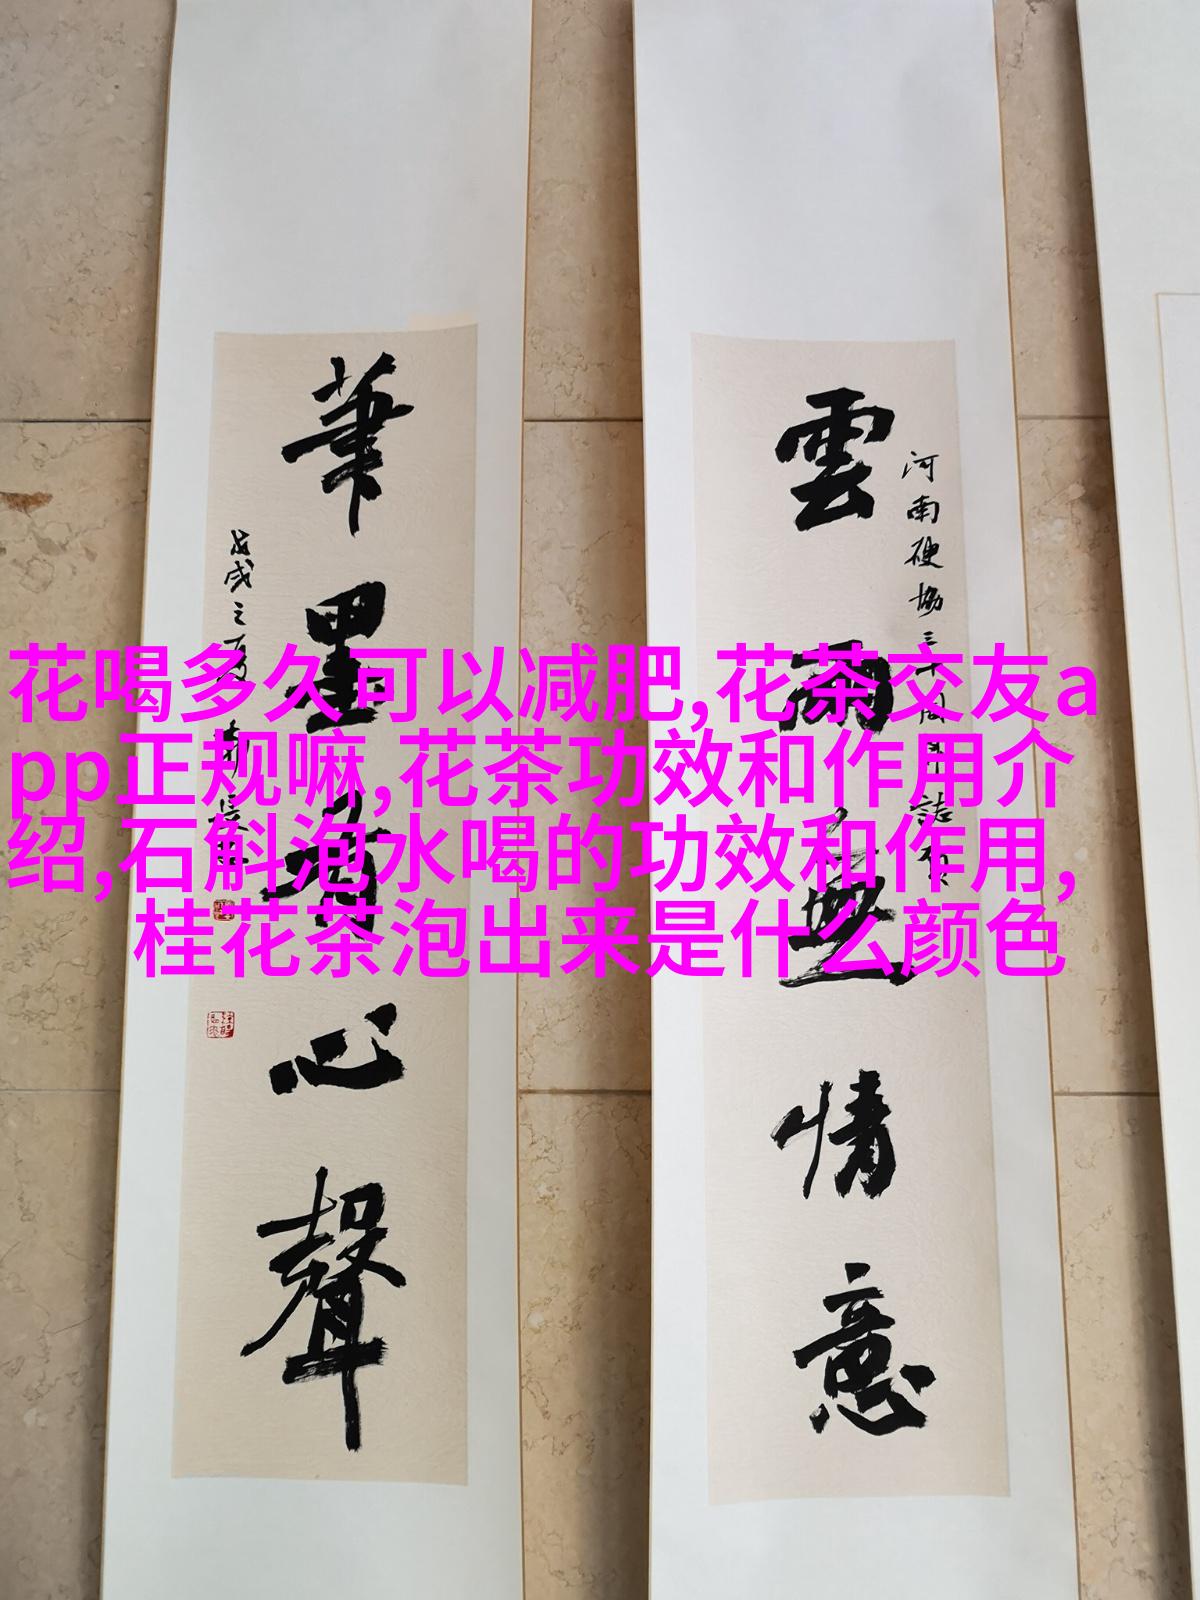 花喝多久可以减肥,花茶交友a
pp正规嘛,花茶功效和作用介
绍,石斛泡水喝的功效和作用,
桂花茶泡出来是什么颜色
河南硬協三十周年誌賀
雲雨無情意
筆墨有心聲
戊戌之夏